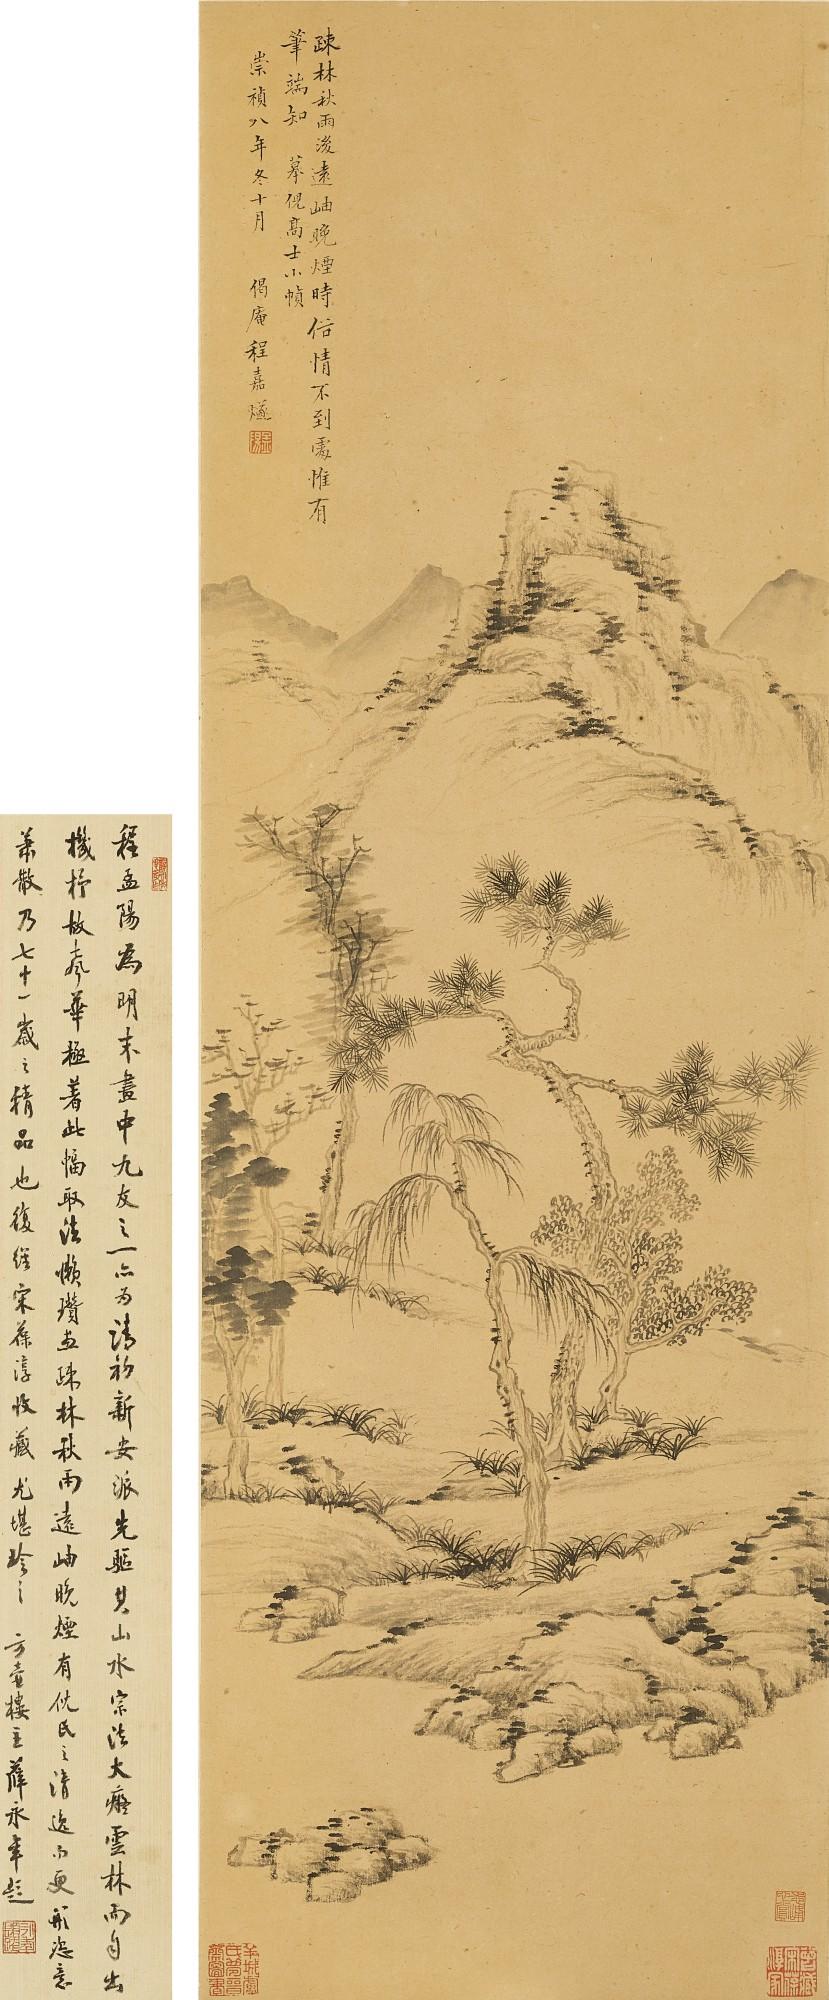 疎林秋雨後遠岫晚煙時俗情不到處惟有
筆端知　摹倪高士小幀
崇禎八年冬十月　偈庵程嘉燧
程孟陽為明末畫中九友之一亦為清初新安派先驅其山水宗法大癡雲林而自出
機杼故聲華極著此幅取法懶瓚畫疎林秋雨遠岫晚煙有倪氏之清逸而更形恣意
蕭散乃七十一歲之精品也復經宋葆淳收藏尤堪珍之　方壺樓主薛永年題